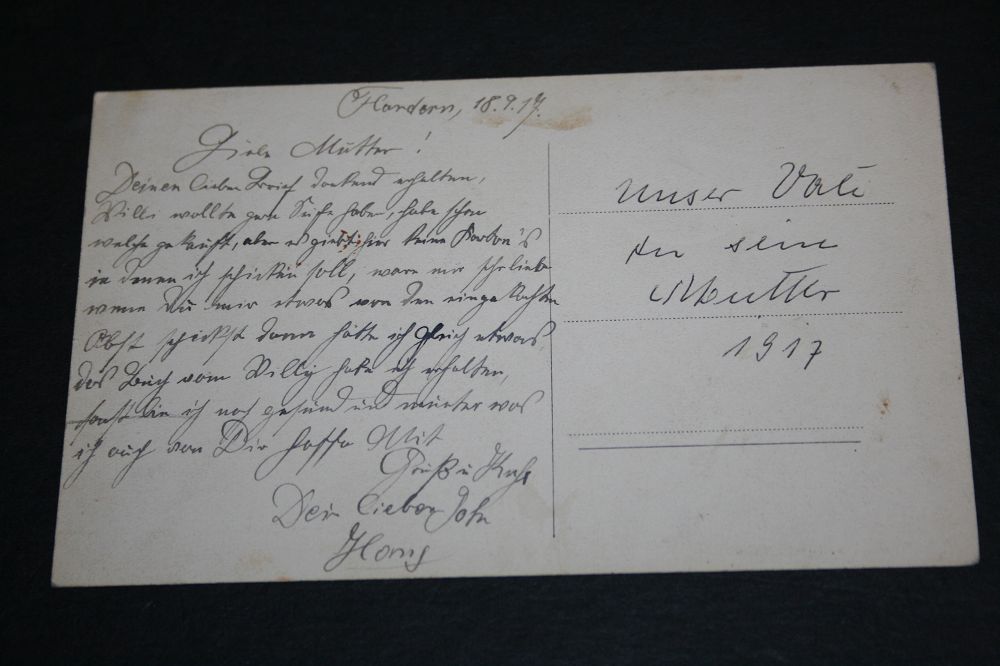 Flandern, 18.9.17.
Liebe Mutter!
Deinen lieben Brief dankend erhalten,
Willi wollte gern Seife haben, habe schon
welche gekauft, aber es giebt hier keine Karton's
in denen ich schicken soll, wäre mir sehr lieb
wenn Du mir etwas von den eingekochten
Obst schickst dann hätte ich gleich etwas,
das Buch vom Willy habe ich erhalten,
sonst bin ich noch gesund und munter was
ich auch von Dir hoffe Mit
Gruß u Kuß
Dein lieber Sohn
Hans
Unser Vati
an sein
Mutter
1917